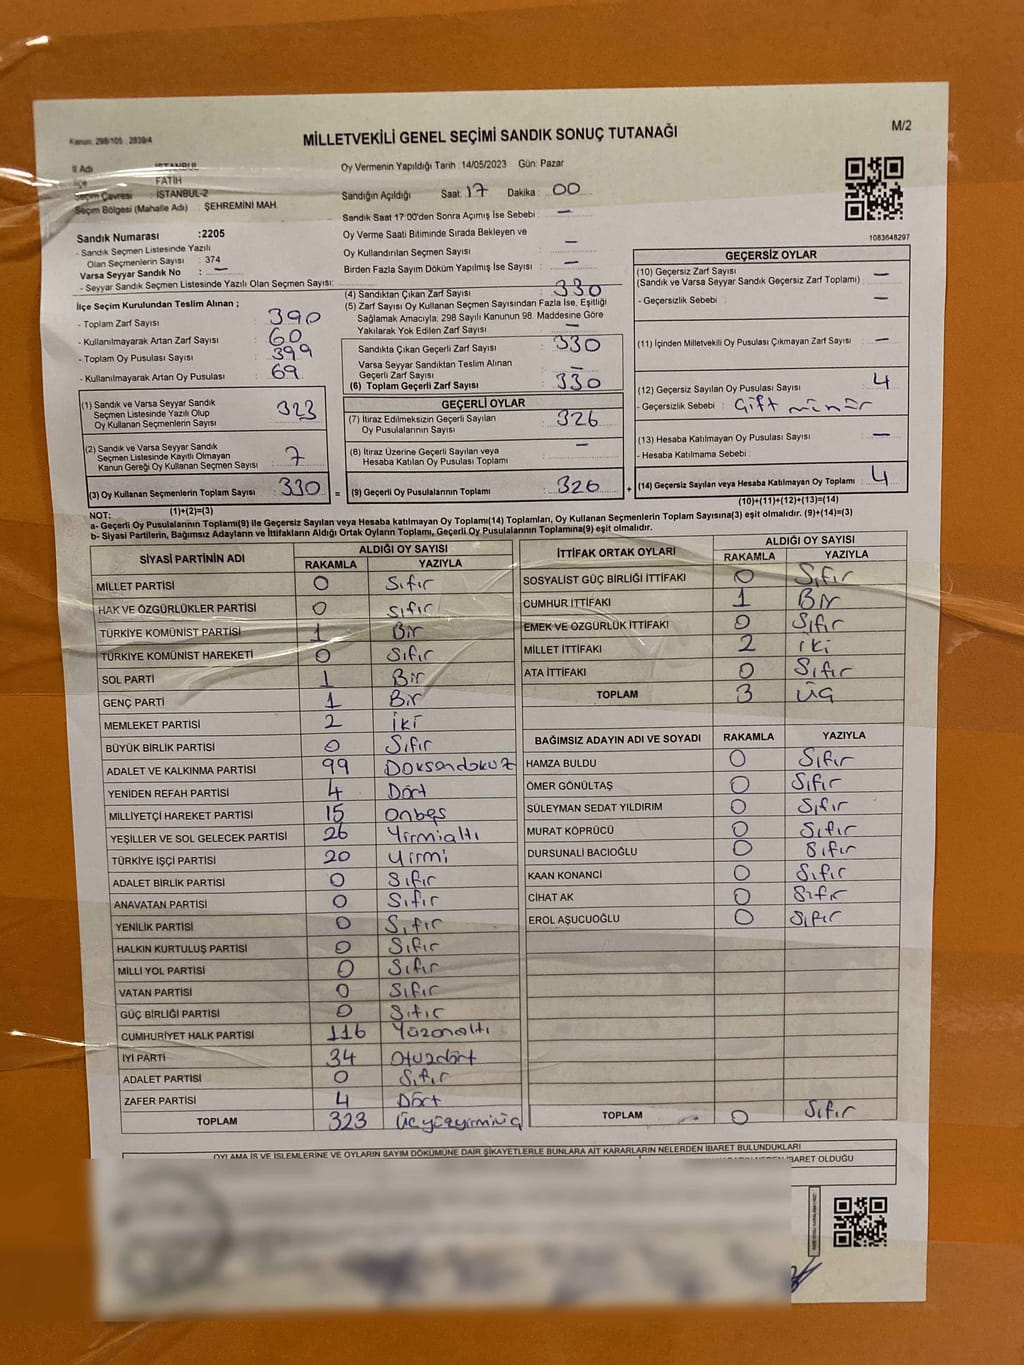 Kanun: 298/105 , 2839/4
MİLLETVEKİLİ GENEL SEÇİMİ SANDIK SONUÇ TUTANAĞI
M/2
İl Adı : İSTANBUL
İlçe : FATİH
Seçim Çevresi : İSTANBUL-2
Seçim Bölgesi (Mahalle Adı) : ŞEHREMİNİ MAH.
Oy Vermenin Yapıldığı Tarih : 14/05/2023 Gün: Pazar
Sandığın Açıldığı Saat: 17 Dakika : 00
Sandık Saat 17:00'den Sonra Açımış İse Sebebi : —
Oy Verme Saati Bitiminde Sırada Bekleyen ve
Oy Kullandırılan Seçmen Sayısı : —
Birden Fazla Sayım Döküm Yapılmış İse Sayısı : —
1083648297
Sandık Numarası : 2205
- Sandık Seçmen Listesinde Yazılı
Olan Seçmenlerin Sayısı : 374
Varsa Seyyar Sandık No : —
- Seyyar Sandık Seçmen Listesinde Yazılı Olan Seçmen Sayısı:
İlçe Seçim Kurulundan Teslim Alınan ;
- Toplam Zarf Sayısı : 390
- Kullanılmayarak Artan Zarf Sayısı : 60
- Toplam Oy Pusulası Sayısı : 399
- Kullanılmayarak Artan Oy Pusulası : 69
(1) Sandık ve Varsa Seyyar Sandık
Seçmen Listesinde Yazılı Olup
Oy Kullanan Seçmenlerin Sayısı : 323
(2) Sandık ve Varsa Seyyar Sandık
Seçmen Listesinde Kayıtlı Olmayan
Kanun Gereği Oy Kullanan Seçmen Sayısı : 7
(3) Oy Kullanan Seçmenlerin Toplam Sayısı : 330
(1)+(2)=(3)
(4) Sandıktan Çıkan Zarf Sayısı : 330
(5) Zarf Sayısı Oy Kullanan Seçmen Sayısından Fazla İse, Eşitliği
Sağlamak Amacıyla; 298 Sayılı Kanunun 98. Maddesine Göre
Yakılarak Yok Edilen Zarf Sayısı : —
Sandıkta Çıkan Geçerli Zarf Sayısı : 330
Varsa Seyyar Sandıktan Teslim Alınan
Geçerli Zarf Sayısı : —
(6) Toplam Geçerli Zarf Sayısı : 330
GEÇERLİ OYLAR
(7) İtiraz Edilmeksizin Geçerli Sayılan
Oy Pusulalarının Sayısı : 326
(8) İtiraz Üzerine Geçerli Sayılan veya
Hesaba Katılan Oy Pusulası Toplamı : —
= (9) Geçerli Oy Pusulalarının Toplamı : 326
GEÇERSİZ OYLAR
(10) Geçersiz Zarf Sayısı : —
(Sandık ve Varsa Seyyar Sandık Geçersiz Zarf Toplamı)
- Geçersizlik Sebebi : —
(11) İçinden Milletvekili Oy Pusulası Çıkmayan Zarf Sayısı : —
(12) Geçersiz Sayılan Oy Pusulası Sayısı : 4
- Geçersizlik Sebebi : Çift mühür
(13) Hesaba Katılmayan Oy Pusulası Sayısı : —
- Hesaba Katılmama Sebebi :
+ (14) Geçersiz Sayılan veya Hesaba Katılmayan Oy Toplamı : 4
(10)+(11)+(12)+(13)=(14)
NOT:
a- Geçerli Oy Pusulalarının Toplamı(9) ile Geçersiz Sayılan veya Hesaba katılmayan Oy Toplamı(14) Toplamları, Oy Kullanan Seçmenlerin Toplam Sayısına(3) eşit olmalıdır. (9)+(14)=(3)
b- Siyasi Partilerin, Bağımsız Adayların ve İttifakların Aldığı Ortak Oyların Toplamı, Geçerli Oy Pusulalarının Toplamına(9) eşit olmalıdır.
SİYASİ PARTİNİN ADI ALDIĞI OY SAYISI
RAKAMLA YAZIYLA
MİLLET PARTİSİ 0 Sıfır
HAK VE ÖZGÜRLÜKLER PARTİSİ 0 Sıfır
TÜRKİYE KOMÜNİST PARTİSİ 1 Bir
TÜRKİYE KOMÜNİST HAREKETİ 0 Sıfır
SOL PARTİ 1 Bir
GENÇ PARTİ 1 Bir
MEMLEKET PARTİSİ 2 İki
BÜYÜK BİRLİK PARTİSİ 0 Sıfır
ADALET VE KALKINMA PARTİSİ 99 Doksandokuz
YENİDEN REFAH PARTİSİ 4 Dört
MİLLİYETÇİ HAREKET PARTİSİ 15 Onbeş
YEŞİLLER VE SOL GELECEK PARTİSİ 26 Yirmialtı
TÜRKİYE İŞÇİ PARTİSİ 20 Yirmi
ADALET BİRLİK PARTİSİ 0 Sıfır
ANAVATAN PARTİSİ 0 Sıfır
YENİLİK PARTİSİ 0 Sıfır
HALKIN KURTULUŞ PARTİSİ 0 Sıfır
MİLLİ YOL PARTİSİ 0 Sıfır
VATAN PARTİSİ 0 Sıfır
GÜÇ BİRLİĞİ PARTİSİ 0 Sıfır
CUMHURİYET HALK PARTİSİ 116 Yüzonaltı
İYİ PARTİ 34 Otuzdört
ADALET PARTİSİ 0 Sıfır
ZAFER PARTİSİ 4 Dört
TOPLAM 323 Üçyüzyirmiüç
İTTİFAK ORTAK OYLARI ALDIĞI OY SAYISI
RAKAMLA YAZIYLA
SOSYALİST GÜÇ BİRLİĞİ İTTİFAKI 0 Sıfır
CUMHUR İTTİFAKI 1 Bir
EMEK VE ÖZGÜRLÜK İTTİFAKI 0 Sıfır
MİLLET İTTİFAKI 2 İki
ATA İTTİFAKI 0 Sıfır
TOPLAM 3 Üç
BAĞIMSIZ ADAYIN ADI VE SOYADI RAKAMLA YAZIYLA
HAMZA BULDU 0 Sıfır
ÖMER GÖNÜLTAŞ 0 Sıfır
SÜLEYMAN SEDAT YILDIRIM 0 Sıfır
MURAT KÖPRÜCÜ 0 Sıfır
DURSUNALİ BACIOĞLU 0 Sıfır
KAAN KONANCİ 0 Sıfır
CİHAT AK 0 Sıfır
EROL AŞUCUOĞLU 0 Sıfır
TOPLAM 0 Sıfır
OYLAMA İŞ VE İŞLEMLERİNE VE OYLARIN SAYIM DÖKÜMÜNE DAİR ŞİKAYETLERLE BUNLARA AİT KARARLARIN NELERDEN İBARET BULUNDUKLARI
İBARET OLDUĞU